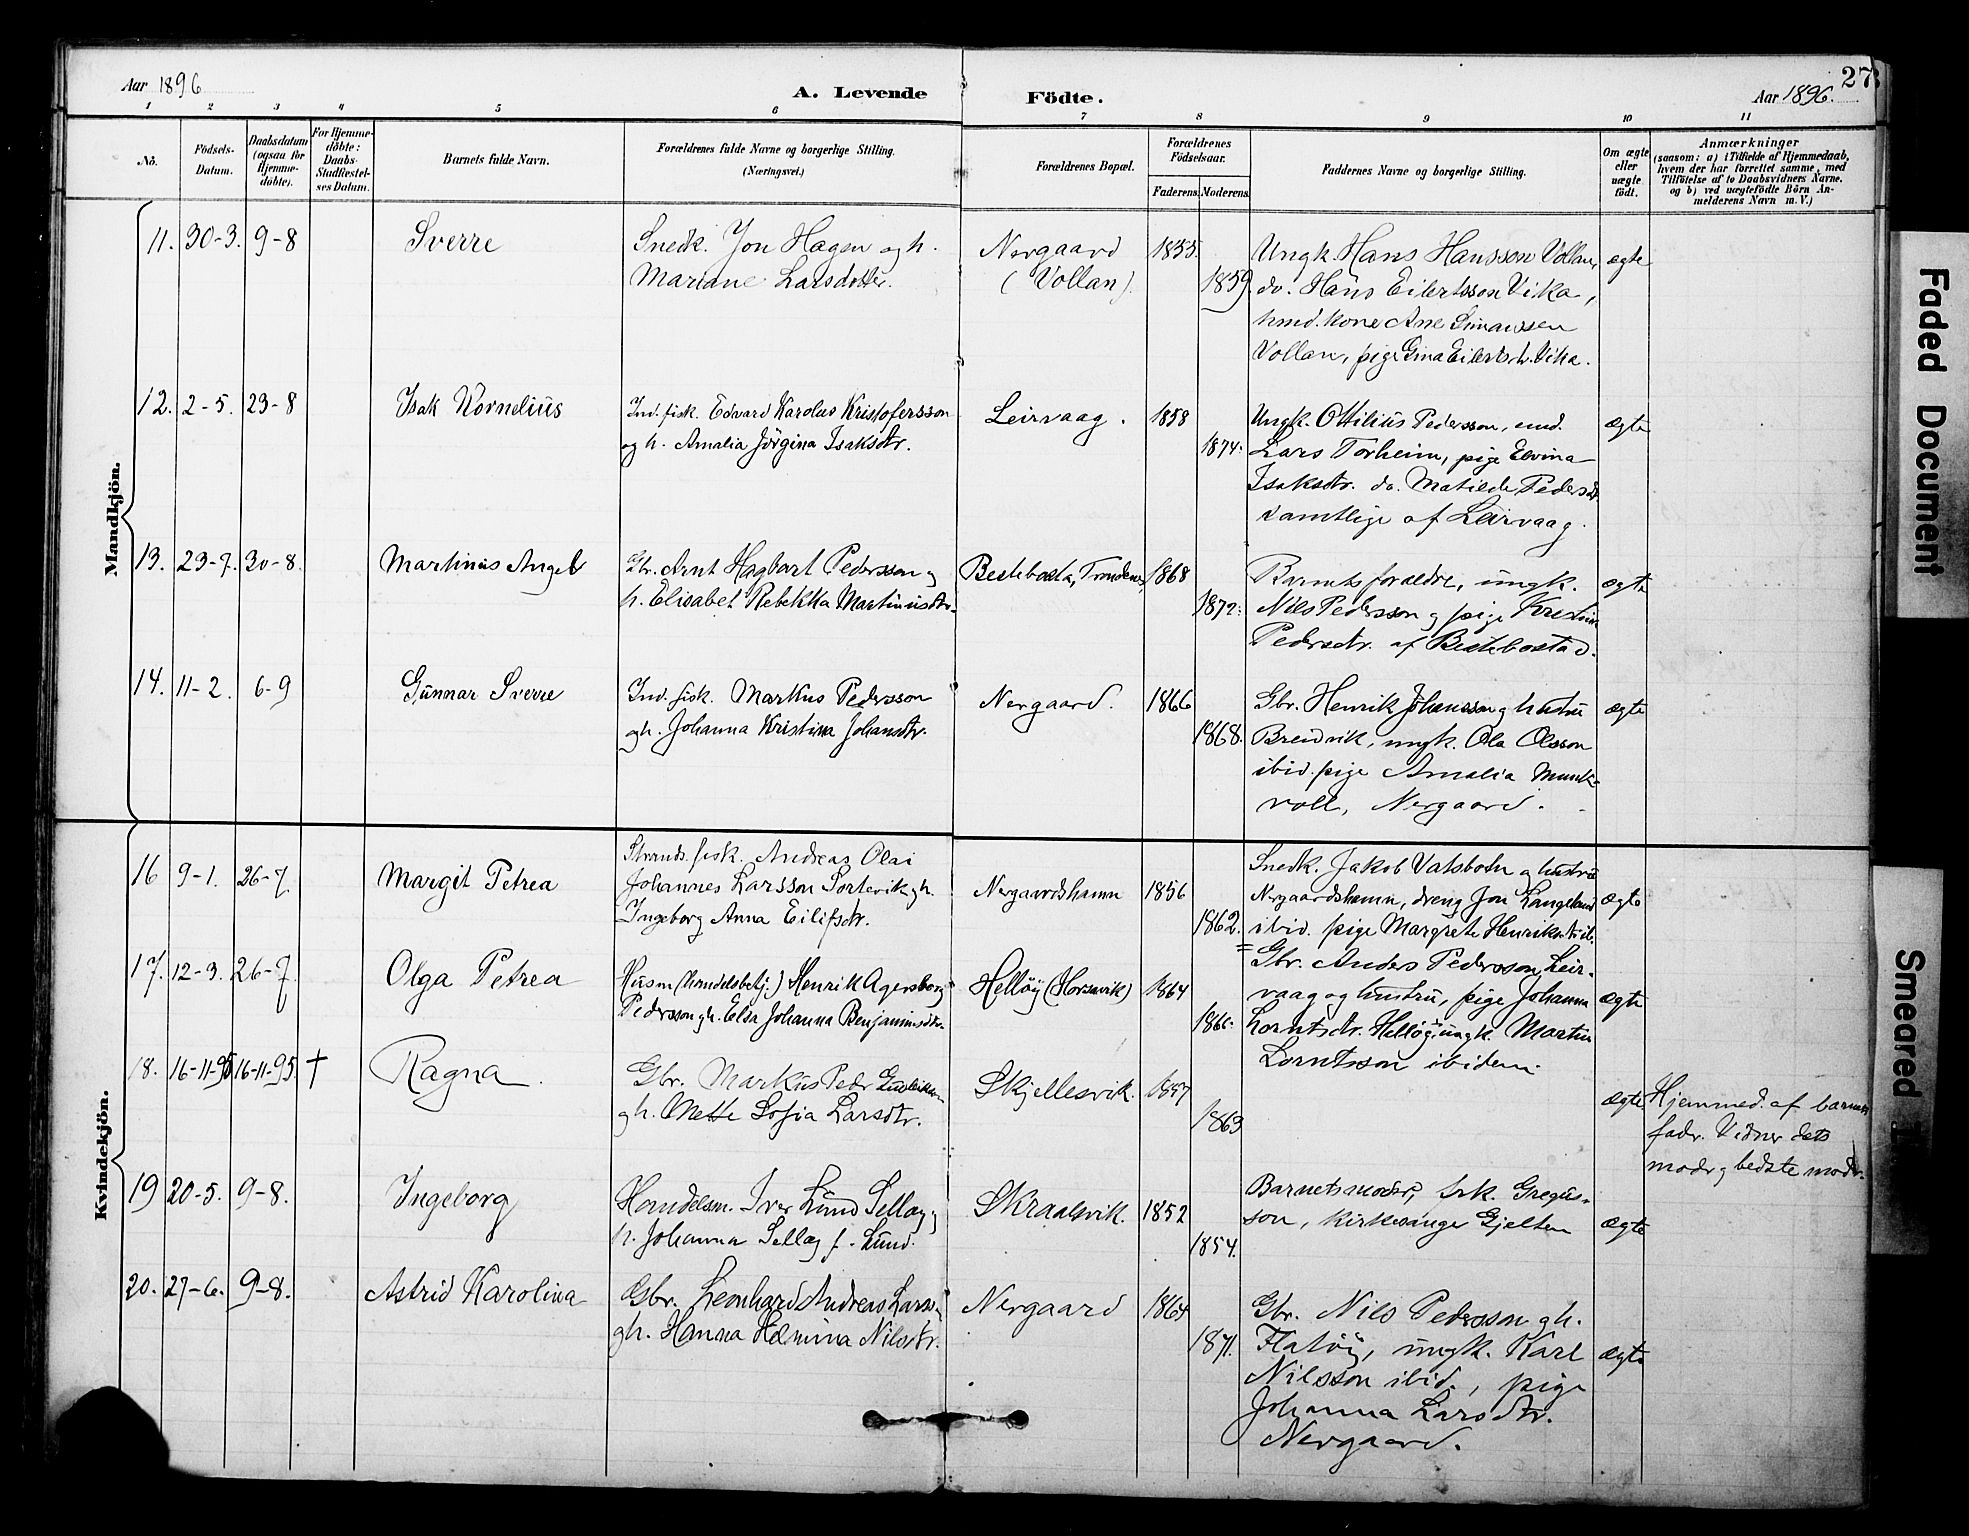 Aar 1896
A. Levende
Födte.
Aar 1896.
27
1 2 3 4 5 6 7 8 9 10 11
No.
Födsels-
Datum.
Daabsdatum
(ogsaa for
Hjemme-
döbte).
For Hjemme-
döbte:
Daabs-
Stadfæstel-
ses Datum.
Barnets fulde Navn.
Forældrenes fulde Navne og borgerlige Stilling.
(Næringsvei.)
Forældrenes Bopæl.
Forældrenes
Födselsaar.
Faderens. Moderens.
Faddernes Navne og borgerlige Stilling.
Om ægte
eller
uægte
födt.
Anmærkninger
(saasom: a) i Tilfælde af Hjemmedaab,
hvem der har forrettet samme, med
Tilföielse af to Daabsvidners Navne.
og b) ved uægtefödte Börn An-
melderens Navn m. V.)
Mandkjön.
11. 30-3. 9-8
Sverre
Snedk. Jon Hagen og h.
Mariane Larsdotter.
Nergaard
(Vollan)
1855.
1859.
Ungk. Hans Hansson Vollan,
do. Hans Eilertsson Vika,
hmd. kone Ane Simonssen
Vollan, pige Gina Eilertsd. Vika.
ægte
12. 2-5. 23-8
Isak Kornelius
Ind. fisk. Edvard Karolus Kristofersson
og h. Amalia Jörgina Isaksdtr.
Leirvaag.
1858
1874.
Ungk. Ottilius Pedersson, emd.
Lars Torheim, pige Elvina
Isaksdtr. do. Matilde Pedersdtr.
samtlige af Leirvaag.
ægte
13. 23-7. 30-8.
Martinus Angel
Gbr. Arnt Hagbart Pedersson og
h. Elisabet Rebekka Martinusdtr.
Bestebosta, Trondenes
1868
1872.
Barnets forældre, ungk.
Nils Pedersson og pige Kristine
Pedersdtr. af Bestebostad.
ægte
14. 11-2. 6-9
Gunnar Sverre
Ind. fisk. Markus Pedersson
og h. Johanna Kristina Johansdtr.
Nergaard.
1866
1868.
Gbr. Henrik Johansson og hustru
Breivik, ungk. Ola Olsson
ibid. pige Amalia Munk-
voll, Nergaard.
ægte
Kvindekjön.
16 9-1. 26-7
Margit Petrea
Strands. fisk. Andreas Olai
Johannes Larsson Sortevik og h.
Ingeborg Anna Eilifsdtr.
Nergaardshamn
1856
1862.
Snedk. Jakob Vatsbotn og hustru
Nergaardshamn, dreng Jon Langelund
ibid. pige Margrete Henriksdtr. ib.
ægte
17. 12-3. 26-7.
Olga Petrea
Husm (handelsbetj.) Henrik Agersborg
Pedersson og h. Elsa Johanna Benjaminsdtr.
Hellöy (Horsevik)
1864
1866.
Gbr. Anders Pedersson Leir-
vaag og hustru, pige Johanna
Lorntsdtr. Hellöy, ungk. Martin
Lorntsson ibidem.
ægte
18. 16-11-95 16-11-95. †
Ragna.
Gbr. Markus Pedr
og h. Anette Sofia Larsdtr.
Skjellesvik.
1857
1863
ægte
Hjemmed. af barnets
fader. Vidner dets
moder og bedste moder.
19 20-5. 9-8.
Ingeborg
Handelsm. Iver Lund Sellæg og
h. Johanna Sellæg f. Lund.
Skraalsvik.
1852
1854.
Barnets moder, frk. Gregus-
son, kirkesanger Gjelten
ægte
20. 27-6. 9-8.
Astrid Karolina
Gbr. Leonhard Andreas Larss.
og h. Hanna Hemina Nilsdtr.
Nergaard
1864
1871.
Gbr. Nils Pedersson og h.
Flatöy, ungk. Karl
Nilsson ibid., pige
Johanna Larsdtr.
Nergaard.
ægte
Faded Document
Smeared